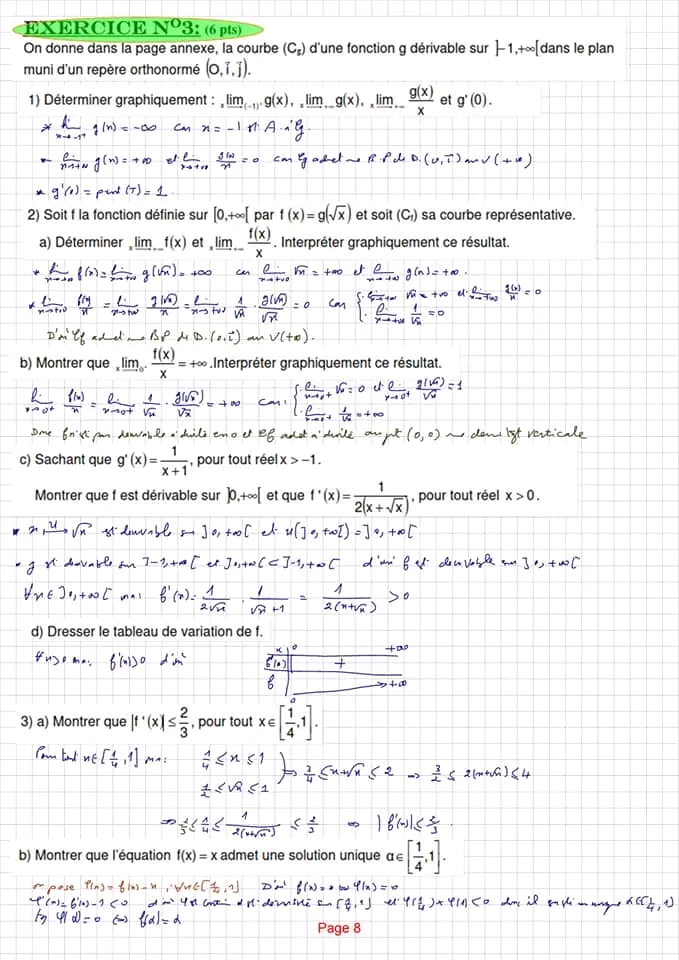 EXERCICE N°3: (6 pts)
On donne dans la page annexe, la courbe (Cg) d'une fonction g dérivable sur ]-1,+∞[ dans le plan
muni d'un repère orthonormé (O,i⃗,j⃗).
1) Déterminer graphiquement : lim x→(-1)⁺ g(x), lim x→+∞ g(x), lim x→+∞ g(x)/x et g'(0).
* lim x→-1⁺ g(x) = -∞ car x = -1 est A. à Cg.
* lim x→+∞ g(x) = +∞ et lim x→+∞ g(x)/x = 0 car Cg admet une B.P de D.(O,i⃗) au V(+∞)
* g'(0) = pent(T) = 1.
2) Soit f la fonction définie sur [0,+∞[ par f(x)=g(√x) et soit (Cf) sa courbe représentative.
a) Déterminer lim x→+∞ f(x) et lim x→+∞ f(x)/x. Interpréter graphiquement ce résultat.
* lim x→+∞ f(x) = lim x→+∞ g(√x) = +∞ car lim x→+∞ √x = +∞ et lim x→+∞ g(x) = +∞.
* lim x→+∞ f(x)/x = lim x→+∞ g(√x)/x = lim x→+∞ 1/√x · g(√x)/√x = 0 car { lim x→+∞ √x = +∞ et lim x→+∞ g(x)/x = 0
lim x→+∞ 1/√x = 0
D'où Cf admet une BP de D.(O,i⃗) au V(+∞).
b) Montrer que lim x→0⁺ f(x)/x = +∞ .Interpréter graphiquement ce résultat.
lim x→0⁺ f(x)/x = lim x→0⁺ 1/√x · g(√x)/√x = +∞ car: { lim x→0⁺ √x = 0 et lim x→0⁺ g(√x)/√x = 1
lim x→0⁺ 1/√x = +∞
Donc f n'est pas dérivable à droite en 0 et Cf admet à droite au pt (0,0) une demi tgt verticale
c) Sachant que g'(x)= 1/(x+1), pour tout réel x > -1.
Montrer que f est dérivable sur ]0,+∞[ et que f '(x)= 1/(2(x+√x)), pour tout réel x > 0.
* x ↦ᵘ √x est dérivable sur ]0,+∞[ et u(]0,+∞[) = ]0,+∞[
* g est dérivable sur ]-1,+∞[ et ]0,+∞[ ⊂ ]-1,+∞[ d'où f est dérivable sur ]0,+∞[
∀x∈]0,+∞[ on a: f'(x) = 1/(2√x) · 1/(√x+1) = 1/(2(x+√x)) > 0
d) Dresser le tableau de variation de f.
∀x>0 on a: f'(x)>0 d'où
x 0 +∞
f'(x) +
f 0 +∞
3) a) Montrer que |f '(x)| ≤ 2/3, pour tout x∈[1/4,1].
Pour tout x∈[1/4,1] on a: 1/4 ≤ x ≤ 1
1/2 ≤ √x ≤ 1 ⟹ 3/4 ≤ x+√x ≤ 2 ⟹ 3/2 ≤ 2(x+√x) ≤ 4
⟹ -2/3 ≤ 1/4 ≤ 1/(2(x+√x)) ≤ 2/3 ⟹ |f'(x)| ≤ 2/3.
b) Montrer que l'équation f(x) = x admet une solution unique α∈[1/4,1].
on pose φ(x) = f(x)-x, ∀x∈[1/4,1] D'où f(x)=x ⟺ φ(x)=0
φ'(x) = f'(x)-1 <0 d'où φ est contin et st décroiss sur [1/4,1] et φ(1/4)×φ(1)<0 donc il existe un unique α∈]1/4,1[
tq φ(α)=0 ⟺ f(α)=α
Page 8